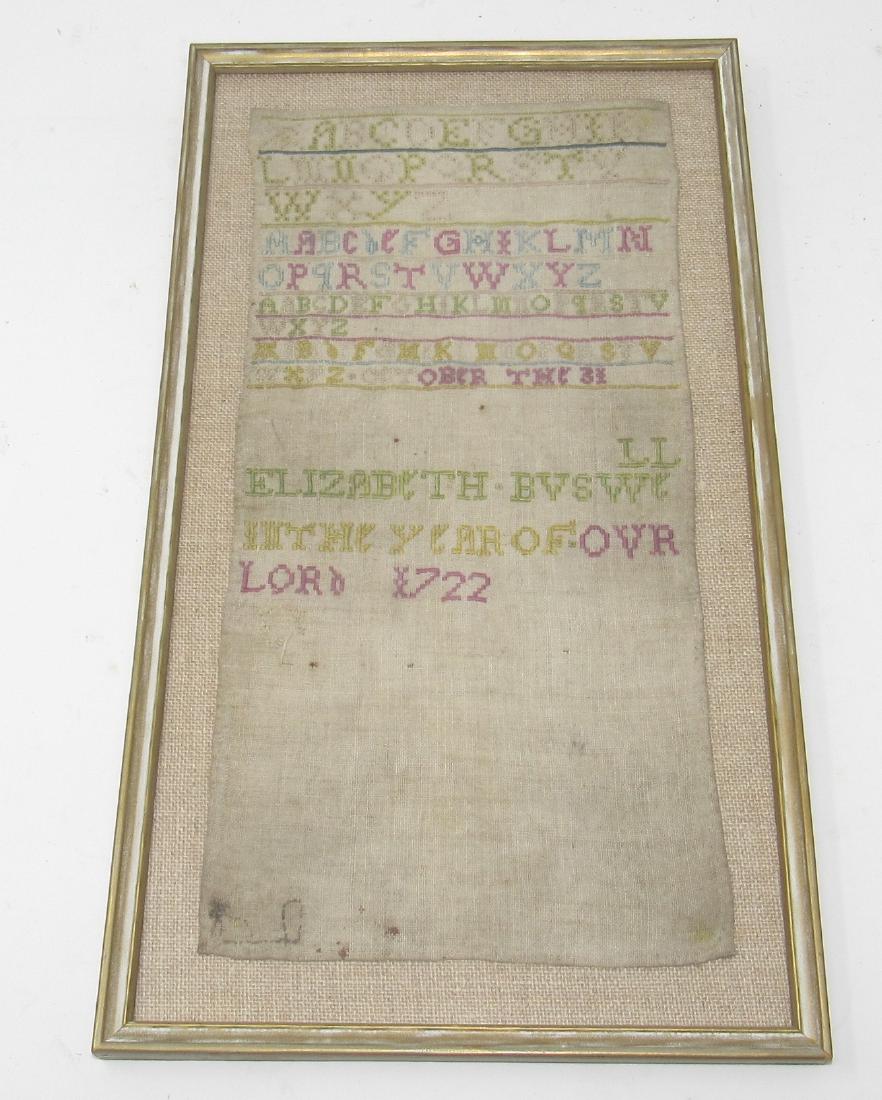 A B C D E F G H I K
L M N O P Q R S T V
W X Y Z
A A B C D e F G H I K L M N
O P q R S T V W X Y Z
A A B C D E F G H I K L M N O P q R S T V
W X Y Z
A B D F G H K M O Q S T V
X Z OCTOBeR THe 31
LL
ELIZABeTH · BVSWe
IN THe YeAR OF OVR
LORD 1722